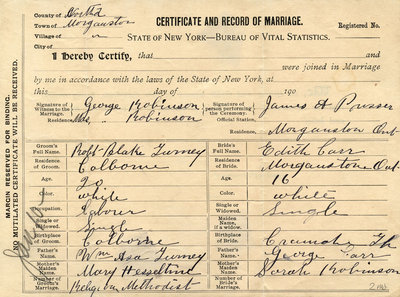 County of
Town of Morganston
Village of
City of
CERTIFICATE AND RECORD OF MARRIAGE.
Registered No.
STATE OF NEW YORK—BUREAU OF VITAL STATISTICS.
I Hereby Certify, that and
were joined in Marriage
by me in accordance with the laws of the State of New York, at
this day of 190
Signature of Witness to the Marriage. George Robinson
Mrs. Robinson
Residence,
Signature of person performing the Ceremony. James A Prosser
Official Station.
Residence, Morganston Ont
Groom's Full Name. Robt Blake Turney
Bride's Full Name. Edith Carr
Residence of Groom. Colborne
Residence of Bride. Morganston Ont
Age.
Age. 16
Color. white
Color. white
Occupation. Laborer
Single or Widowed. Single
Single or Widowed. Single
Maiden Name, if a widow.
Birthplace of Groom. Colborne
Birthplace of Bride. Cramahe
Father's Name. Wm Asa Turney
Father's Name. George Carr
Mother's Maiden Name. Mary Hesselline
Mother's Maiden Name. Sarah Robinson
Number Religion Methodist
MARGIN RESERVED FOR BINDING.
NO MUTILATED CERTIFICATE WILL BE RECEIVED.